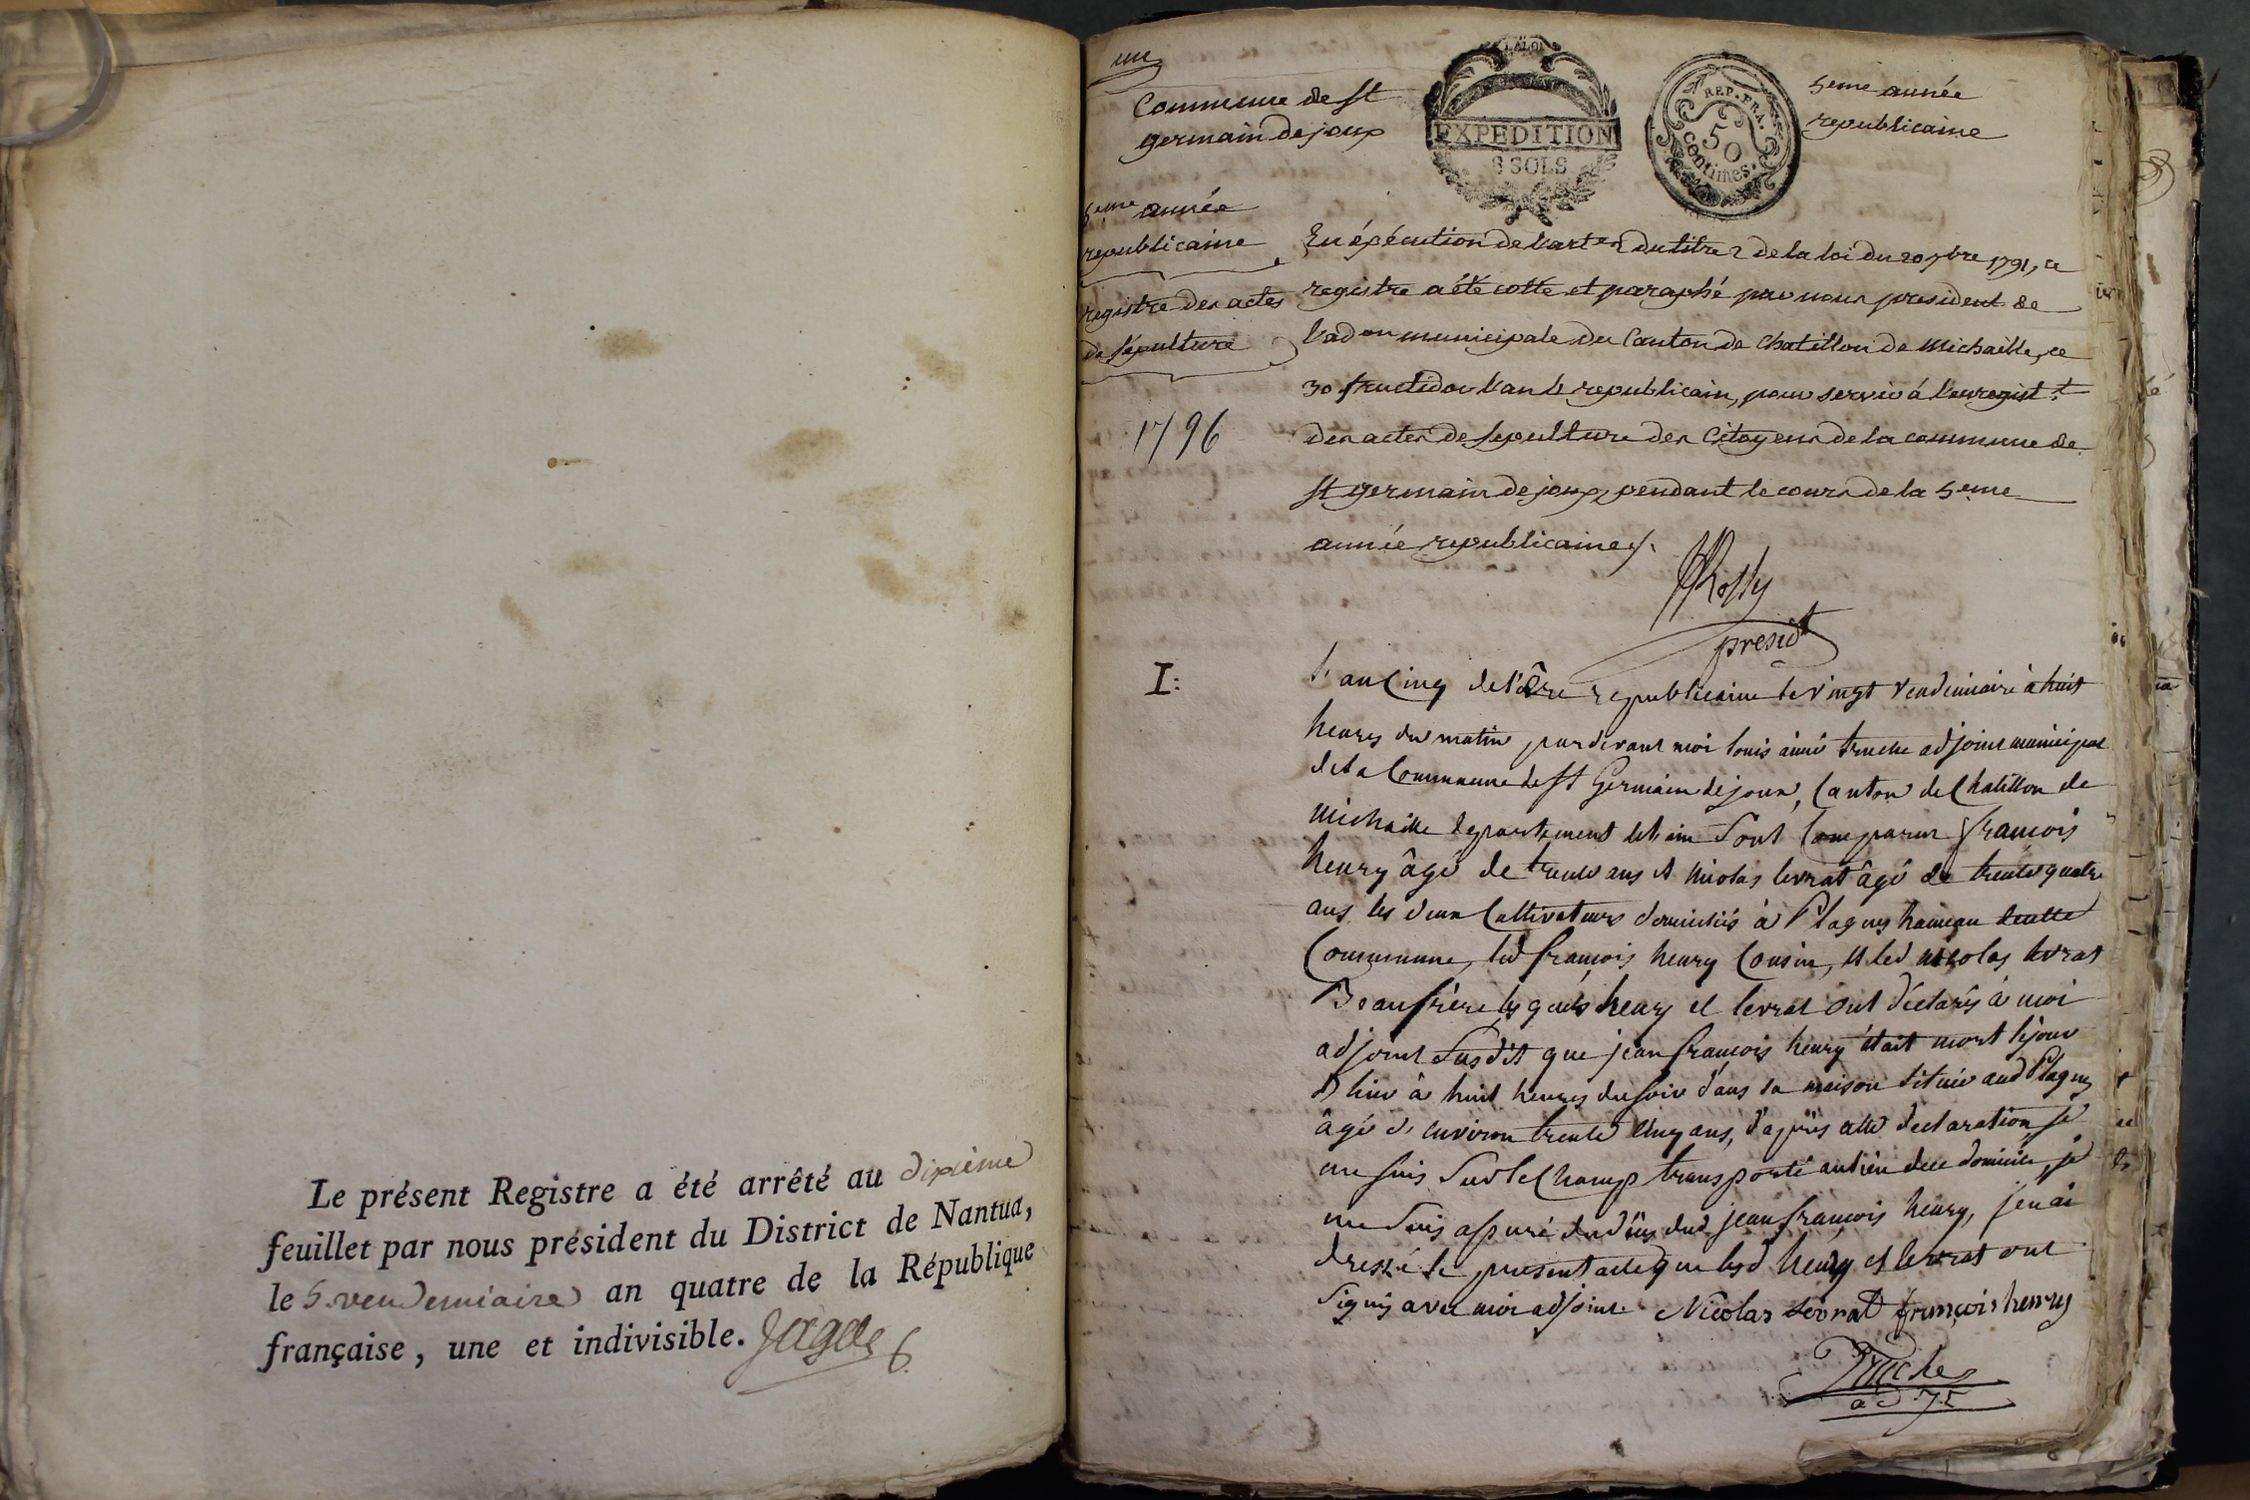 Le présent Registre a été arrêté au dixieme
feuillet par nous président du District de Nantua,
le 5. vendemiaire an quatre de la République
française, une et indivisible.
un
Commune de St
germain de joux
LA LOI
EXPEDITION
8 SOLS
REP. FRA.
50
centimes.
5eme année
republicaine
5eme année
republicaine
registre des actes
de sépulture
1796
En éxécution de l'art 2 du titre 2 de la loi du 20 7bre 1791, ce
registre a été cotté et paraphé par nous president de
l'adon municipale du Canton de Chatillon de Michaille, ce
30 fructidor l'an 4 republicain, pour servir à l'enregistt
des actes de sepulture des Citoyens de la commune de
St germain de joux, pendant le cours de la 5eme
année republicaine /.
Rossy
presidt
I:
L'an Cinq de l'ère republicaine le vingt vendemiaire à huit
heures du matin, pardevant moi louis aimé truche adjoint municipal
de la Commune de St Germain de joux, Canton de Chatillon de
Michaille departement de l'ain Sont Comparus françois
henry âgé de trente ans et nicolas levrat âgé de trente quatre
ans les deux Cultivateurs domiciliés à Plagnes hameau de cette
Commune, led françois henry Cousin, et led nicolas levrat
Beaufrère lesquels henry et levrat ont déclarés à moi
adjoint Susdit que jean françois henry était mort le jour
D'hier à huit heures du soir dans sa maison située aud Plagnes
âgé d'environ trente Cinq ans, d'après cette déclaration je
me suis Sur le Champ transporté au lieu de ce domicile, je
me Suis assuré du décès dud jean françois henry, j'en ai
dressé le present acte que lesd henry et levrat ont
Signés avec moi adjoint Nicolas levrat françois henry
Truche
adjt